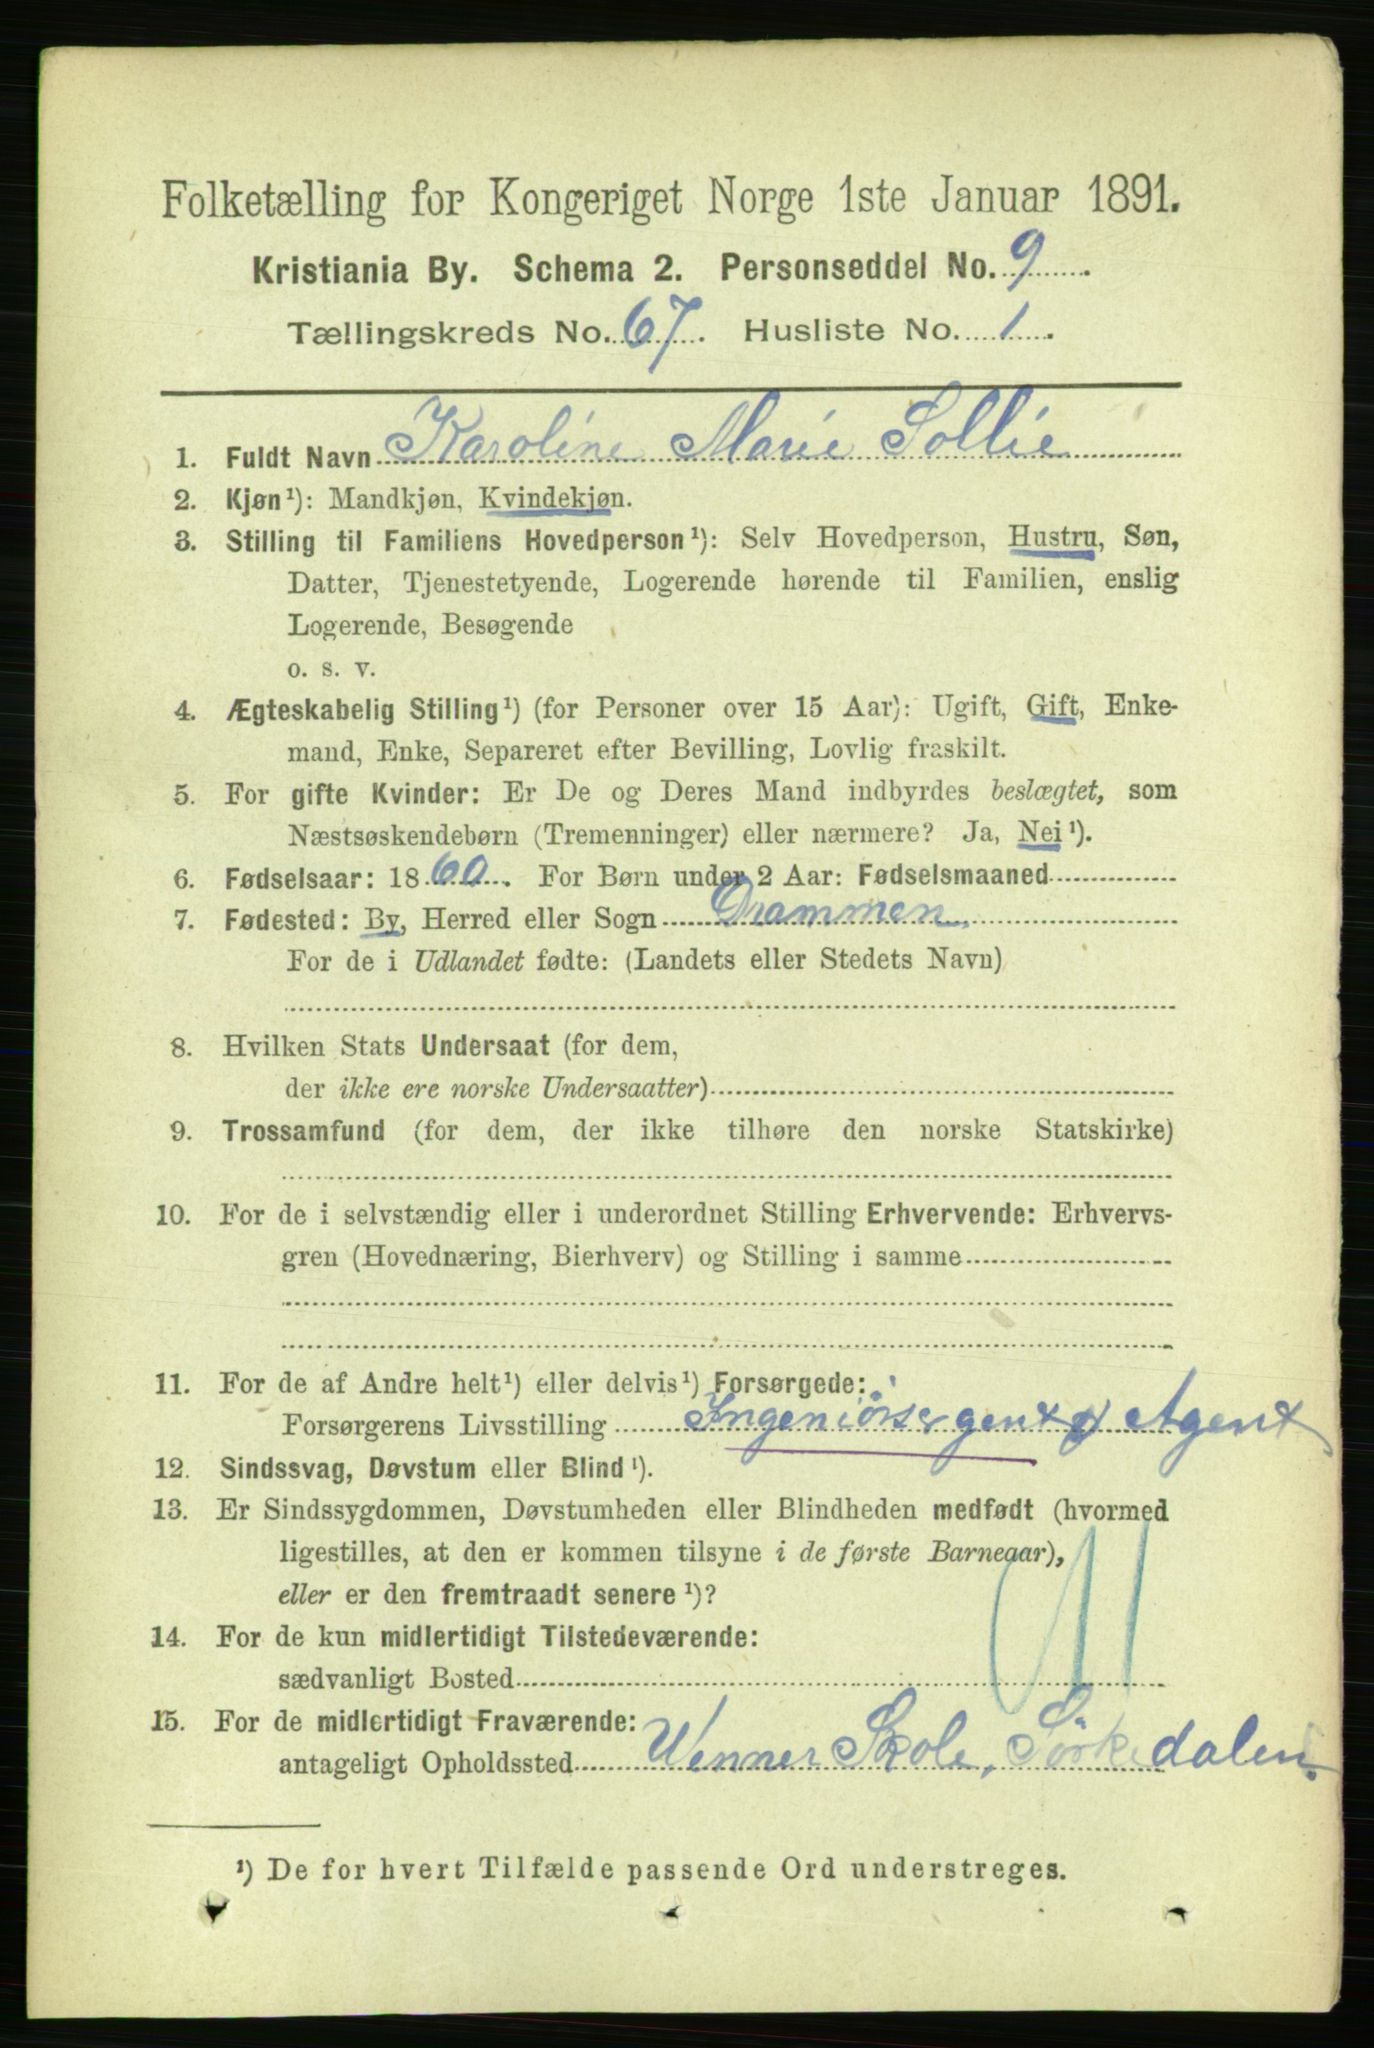 Folketælling for Kongeriget Norge 1ste Januar 1891.
Kristiania By. Schema 2. Personseddel No. 9.
Tællingskreds No. 67. Husliste No. 1.
1. Fuldt Navn Karoline Marie Sollie
2. Kjøn¹): Mandkjøn, Kvindekjøn.
3. Stilling til Familiens Hovedperson¹): Selv Hovedperson, Hustru, Søn,
Datter, Tjenestetyende, Logerende hørende til Familien, enslig
Logerende, Besøgende
o. s. v.
4. Ægteskabelig Stilling¹) (for Personer over 15 Aar): Ugift, Gift, Enke-
mand, Enke, Separeret efter Bevilling, Lovlig fraskilt.
5. For gifte Kvinder: Er De og Deres Mand indbyrdes beslægtet, som
Næstsøskendebørn (Tremenninger) eller nærmere? Ja, Nei¹).
6. Fødselsaar: 1860. For Børn under 2 Aar: Fødselsmaaned
7. Fødested: By, Herred eller Sogn Drammen.
For de i Udlandet fødte: (Landets eller Stedets Navn)
8. Hvilken Stats Undersaat (for dem,
der ikke ere norske Undersaatter)
9. Trossamfund (for dem, der ikke tilhøre den norske Statskirke)
10. For de i selvstændig eller i underordnet Stilling Erhvervende: Erhvervs-
gren (Hovednæring, Bierhverv) og Stilling i samme
11. For de af Andre helt¹) eller delvis¹) Forsørgede:
Forsørgerens Livsstilling Agent
12. Sindssvag, Døvstum eller Blind¹).
13. Er Sindssygdommen, Døvstumheden eller Blindheden medfødt (hvormed
ligestilles, at den er kommen tilsyne i de første Barneaar),
eller er den fremtraadt senere¹)?
14. For de kun midlertidigt Tilstedeværende:
sædvanligt Bosted
15. For de midlertidigt Fraværende:
antageligt Opholdssted Wenner Skole, Sørkedalen.
¹) De for hvert Tilfælde passende Ord understreges.